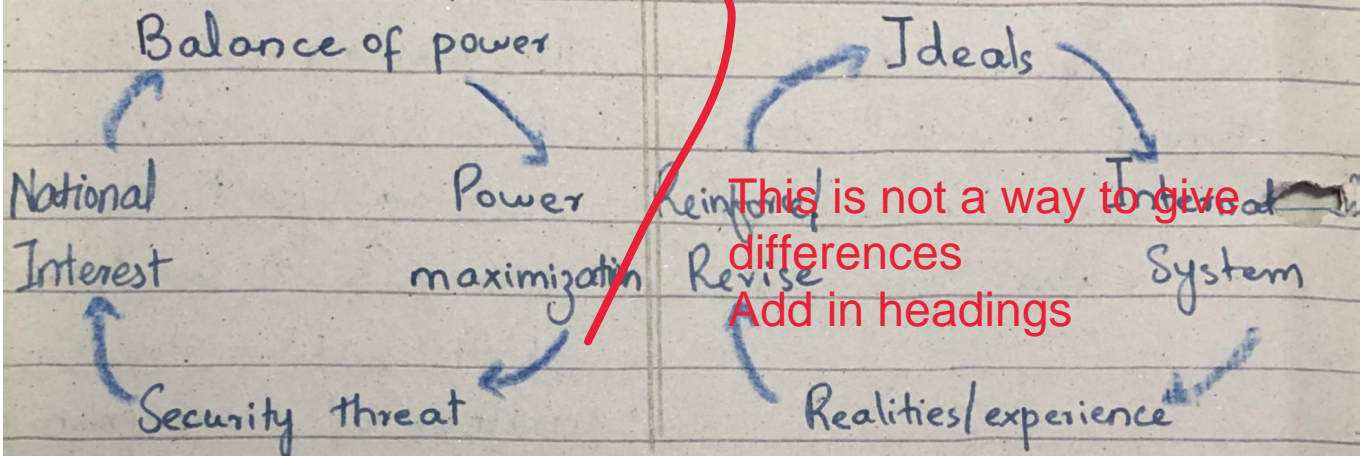 Balance of power
National
Interest
Power
maximization
Security threat
Ideals
Reinforce/
Revise
System
Realities/experience
This is not a way to give
differences
Add in headings